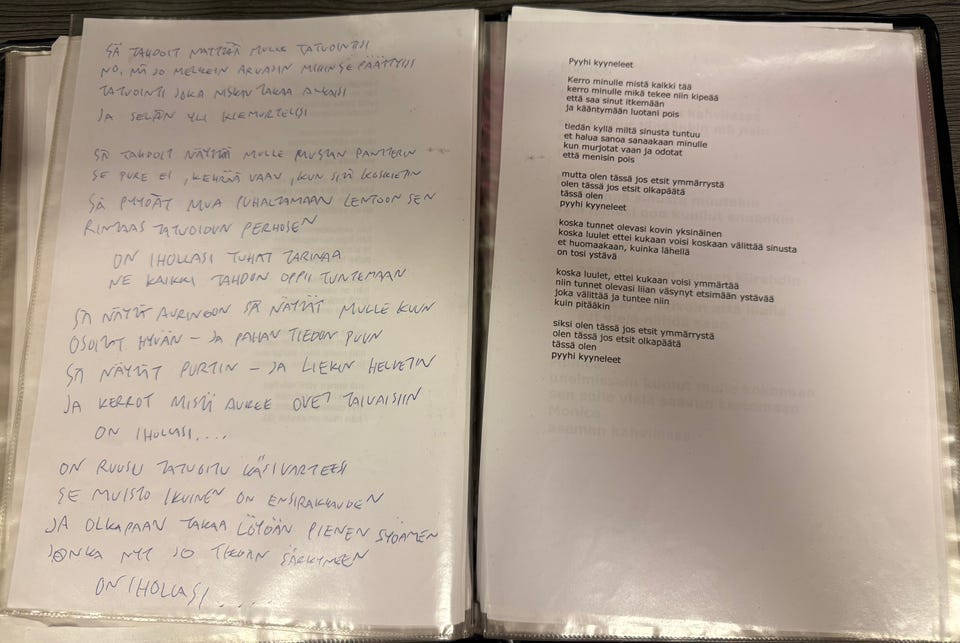 SÄ TAHDOIT NÄYTTÄÄ MULLE TATUOINTISI
NO, MÄ JO MELKEIN ARVASIN MIHIN SE PÄÄTTYISI
TATUOINTI JOKA NISKAN TAKAA ALKAISI
JA SELÄN YLI KIEMURTELISI
SÄ TAHDOIT NÄYTTÄÄ MULLE MUSTAN PANTTERIN
SE PURE EI, KEHRÄÄ VAAN, KUN SITÄ KOSKETIN
SÄ PYYDÄT MUA PUHALTAMAAN LENTOON SEN
RINTAAS TATUOIDUN PERHOSEN
ON IHOLLASI TUHAT TARINAA
NE KAIKKI TAHDON OPPII TUNTEMAAN
SÄ NÄYTÄT AURINGON SÄ NÄYTÄT MULLE KUUN
OSOITAT HYVÄN - JA PAHAN TIEDON PUUN
SÄ NÄYTÄT PURTIN - JA LIEKIN HELVETIN
JA KERROT MISTÄ AUKEE OVET TAIVAISIIN
ON IHOLLASI....
ON RUUSU TATUOITU KÄSIVARTEESI
SE MUISTO IKUINEN ON ENSIRAKKAUDEN
JA OLKAPÄÄN TAKAA LÖYDÄN PIENEN SYDÄMEN
JONKA NYT JO TIEDÄN SÄRKYNEEN
ON IHOLLASI....
Pyyhi kyyneleet
Kerro minulle mistä kaikki tää
kerro minulle mikä tekee niin kipeää
että saa sinut itkemään
ja kääntymään luotani pois
tiedän kyllä miltä sinusta tuntuu
et halua sanoa sanaakaan minulle
kun murjotat vaan ja odotat
että menisin pois
mutta olen tässä jos etsit ymmärrystä
olen tässä jos etsit olkapäätä
tässä olen
pyyhi kyyneleet
koska tunnet olevasi kovin yksinäinen
koska luulet ettei kukaan voisi koskaan välittää sinusta
et huomaakaan, kuinka lähellä
on tosi ystävä
koska luulet, ettei kukaan voisi ymmärtää
niin tunnet olevasi liian väsynyt etsimään ystävää
joka välittää ja tuntee niin
kuin pitääkin
siksi olen tässä jos etsit ymmärrystä
olen tässä jos etsit olkapäätä
tässä olen
pyyhi kyyneleet